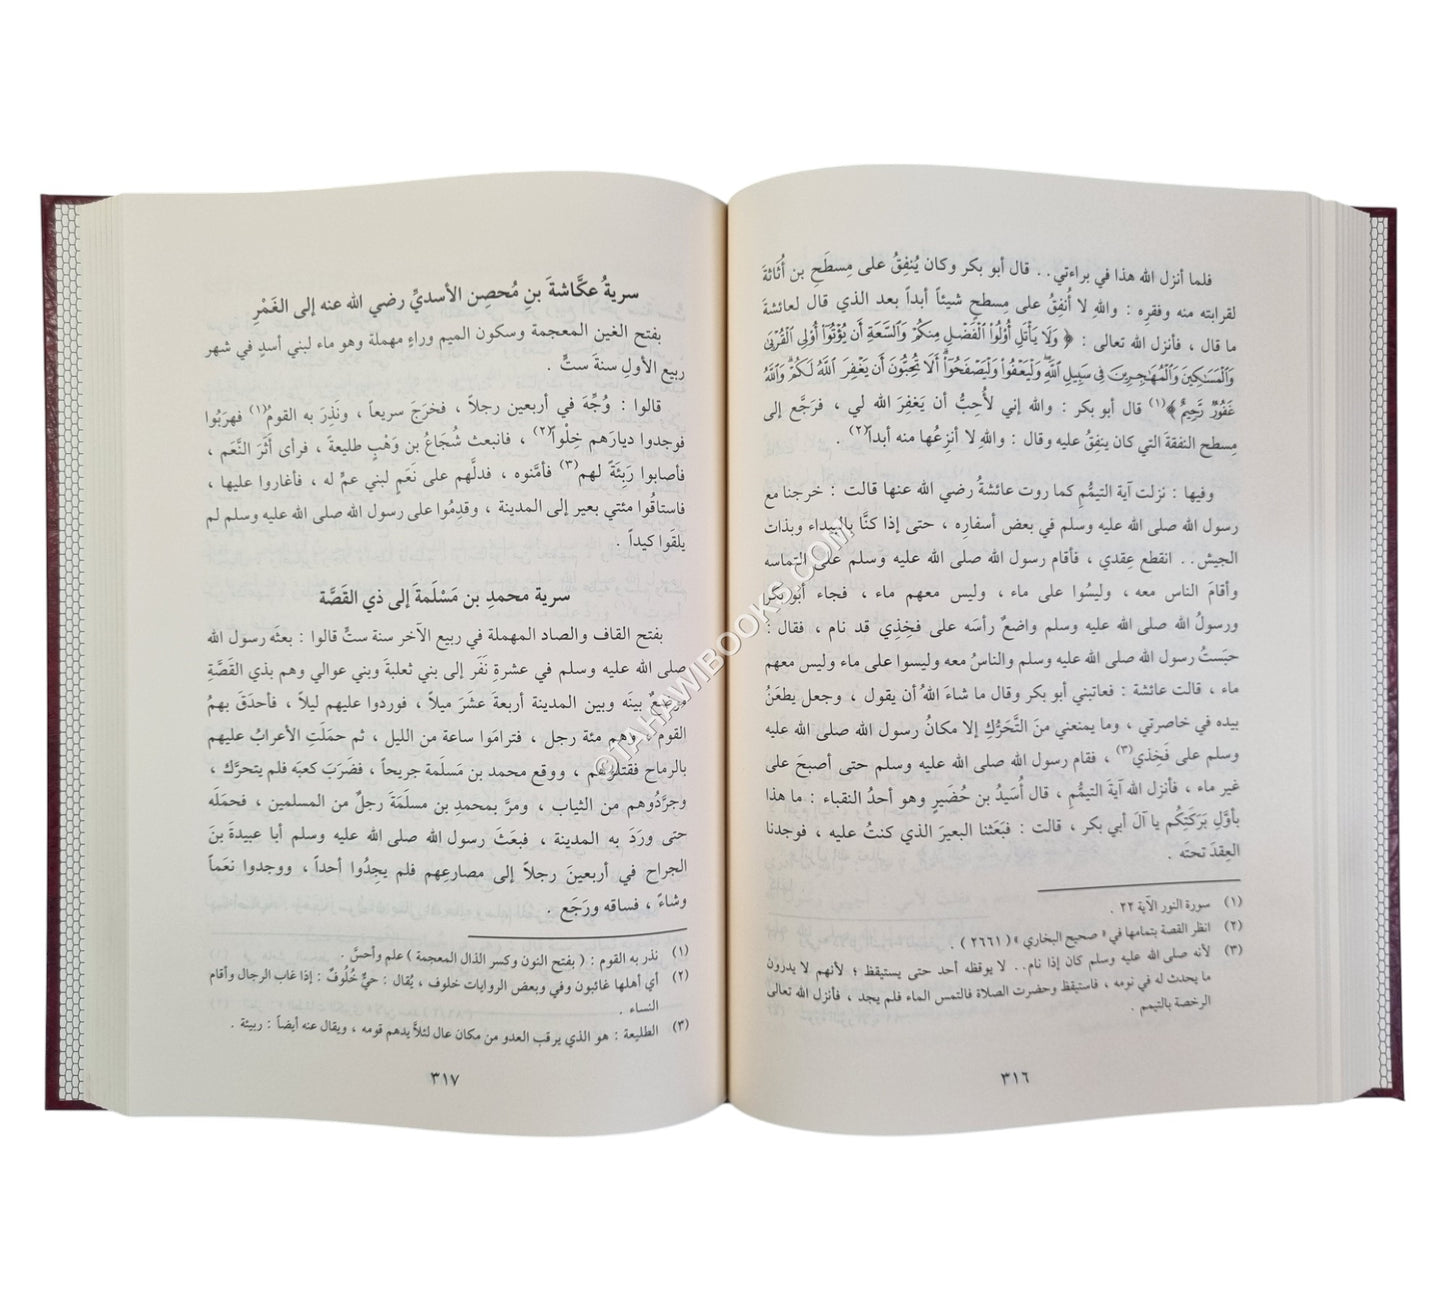 فلما أنزل الله هذا في براءتي . . قال أبو بكر وكان يُنفِقُ على مِسطَحِ بن أُثَاثةَ
لقرابته منه وفقرِه : واللهِ لا أُنفِقُ على مِسطحٍ شيئاً أبداً بعد الذي قال لعائشةَ
ما قال ، فأنزل الله تعالى : ﴿ وَلَا يَأْتَلِ أُوْلُوا۟ ٱلْفَضْلِ مِنكُمْ وَٱلسَّعَةِ أَن يُؤْتُوٓا۟ أُوْلِى ٱلْقُرْبَىٰ
وَٱلْمَسَٰكِينَ وَٱلْمُهَٰجِرِينَ فِى سَبِيلِ ٱللَّهِ ۖ وَلْيَعْفُوا۟ وَلْيَصْفَحُوٓا۟ ۗ أَلَا تُحِبُّونَ أَن يَغْفِرَ ٱللَّهُ لَكُمْ ۗ وَٱللَّهُ
غَفُورٌ رَّحِيمٌ ﴾(١) قال أبو بكر : والله إني لأُحِبُّ أن يَغفِرَ الله لي ، فرَجَّع إلى
مِسطح النفقةَ التي كان ينفِقُ عليه وقال : واللهِ لا أنزِعُها منه أبداً(٢) .
وفيها : نزلت آية التيمُّمِ كما روت عائشةُ رضي الله عنها قالت : خرجنا مع
رسول الله صلى الله عليه وسلم في بعض أسفارِه ، حتى إذا كنَّا بالبيداء وبذات
الجيش . . انقطع عِقدي ، فأقام رسول الله صلى الله عليه وسلم على التماسه
وأقامَ الناس معه ، وليسُوا على ماء ، وليس معهم ماء ، فجاء أبو بكر
ورسولُ الله صلى الله عليه وسلم واضعٌ رأسَه على فخِذِي قد نام ، فقال :
حبَستُ رسول الله صلى الله عليه وسلم والناسُ معه وليسوا على ماء وليس معهم
ماء ، قالت عائشة : فعاتبني أبو بكر وقال ما شاءَ اللهُ أن يقول ، وجعل يطعَنُ
بيده في خاصرتي ، وما يمنعني منَ التَّحَرُّكِ إلا مكانُ رسول الله صلى الله عليه
وسلم على فَخِذي(٣) ، فقام رسول الله صلى الله عليه وسلم حتى أصبحَ على
غير ماء ، فأنزل الله آيةَ التيمُّم ، قال أُسَيدُ بن حُضَيرٍ وهو أحدُ النقباء : ما هذا
بأوَّلِ بَرَكَتِكُم يا آلَ أبي بكر ، قالت : فبَعَثنا البعيرَ الذي كنتُ عليه ، فوجدنا
العِقدَ تحتَه .
(١) سورة النور الآية ٢٢ .
(٢) انظر القصة بتمامها في « صحيح البخاري » ( ٢٦٦١ ) .
(٣) لأنه صلى الله عليه وسلم كان إذا نام . . لا يوقظه أحد حتى يستيقظ ؛ لأنهم لا يدرون
ما يحدث له في نومه ، فاستيقظ وحضرت الصلاة فالتمس الماء فلم يجد ، فأنزل الله تعالى
الرخصة بالتيمم .
٣١٦
سريةُ عكَّاشةَ بنِ مُحصِن الأسديِّ رضي الله عنه إلى الغَمْرِ
بفتح الغين المعجمة وسكون الميم وراءٍ مهملة وهو ماء لبني أسدٍ في شهر
ربيع الأولِ سنةَ ستٍّ .
قالوا : وُجِّهَ في أربعين رجلاً ، فخرَجَ سريعاً ، ونَذِرَ به القومُ(١) فهرَبُوا
فوجدوا ديارَهم خِلْواً(٢) ، فانبعث شُجَاعُ بن وَهْبٍ طليعةً ، فرأى أَثَرَ النَّعَم ،
فأصابوا رَبِئَةً لهم(٣) فأمَّنوه ، فدلَّهم على نَعَمٍ لبني عمٍّ له ، فأغاروا عليها ،
فاستاقُوا مئتي بعير إلى المدينة ، وقدِمُوا على رسول الله صلى الله عليه وسلم لم
يلقَوا كيداً .
سرية محمدِ بن مَسْلَمةَ إلى ذي القَصَّة
بفتح القاف والصاد المهملة في ربيع الآخر سنة ستٍّ قالوا : بعثَه رسول الله
صلى الله عليه وسلم في عشرةِ نَفَر إلى بني ثعلبةَ وبني عوالي وهم بذي القَصَّةِ
موضعٌ بينَه وبين المدينة أربعةَ عشَرَ ميلاً ، فوردوا عليهم ليلاً ، فأحدَقَ بهمُ
القوم ، وهم مئة رجل ، فترامَوا ساعة من الليل ، ثم حملَتِ الأعرابُ عليهم
بالرماح فقتلوهم ، ووقع محمد بن مَسلَمة جريحاً ، فضَرَبَ كعبَه فلم يتحرَّك ،
وجرَّدُوهم من الثياب ، ومرَّ بمحمدِ بن مسلَمَةَ رجلٌ من المسلمين ، فحمَلَه
حتى ورَدَ به المدينة ، فبعَثَ رسول الله صلى الله عليه وسلم أبا عبيدةَ بنَ
الجراح في أربعينَ رجلاً إلى مصارعِهم فلم يجِدُوا أحداً ، ووجدوا نعَماً
وشاءً ، فساقه ورَجَع .
(١) نذر به القوم : ( بفتح النون وكسر الذال المعجمة ) علم وأحسَّ .
(٢) أي أهلها غائبون وفي وبعض الروايات خلوف ، يُقال : حيٌّ خُلُوفٌ : إذا غاب الرجال وأقام
النساء .
(٣) الطليعة : هو الذي يرقب العدو من مكان عال لئلاَّ يدهم قومه ، ويقال عنه أيضاً : ربيئة .
٣١٧
©TAHAWIBOOKS.COM